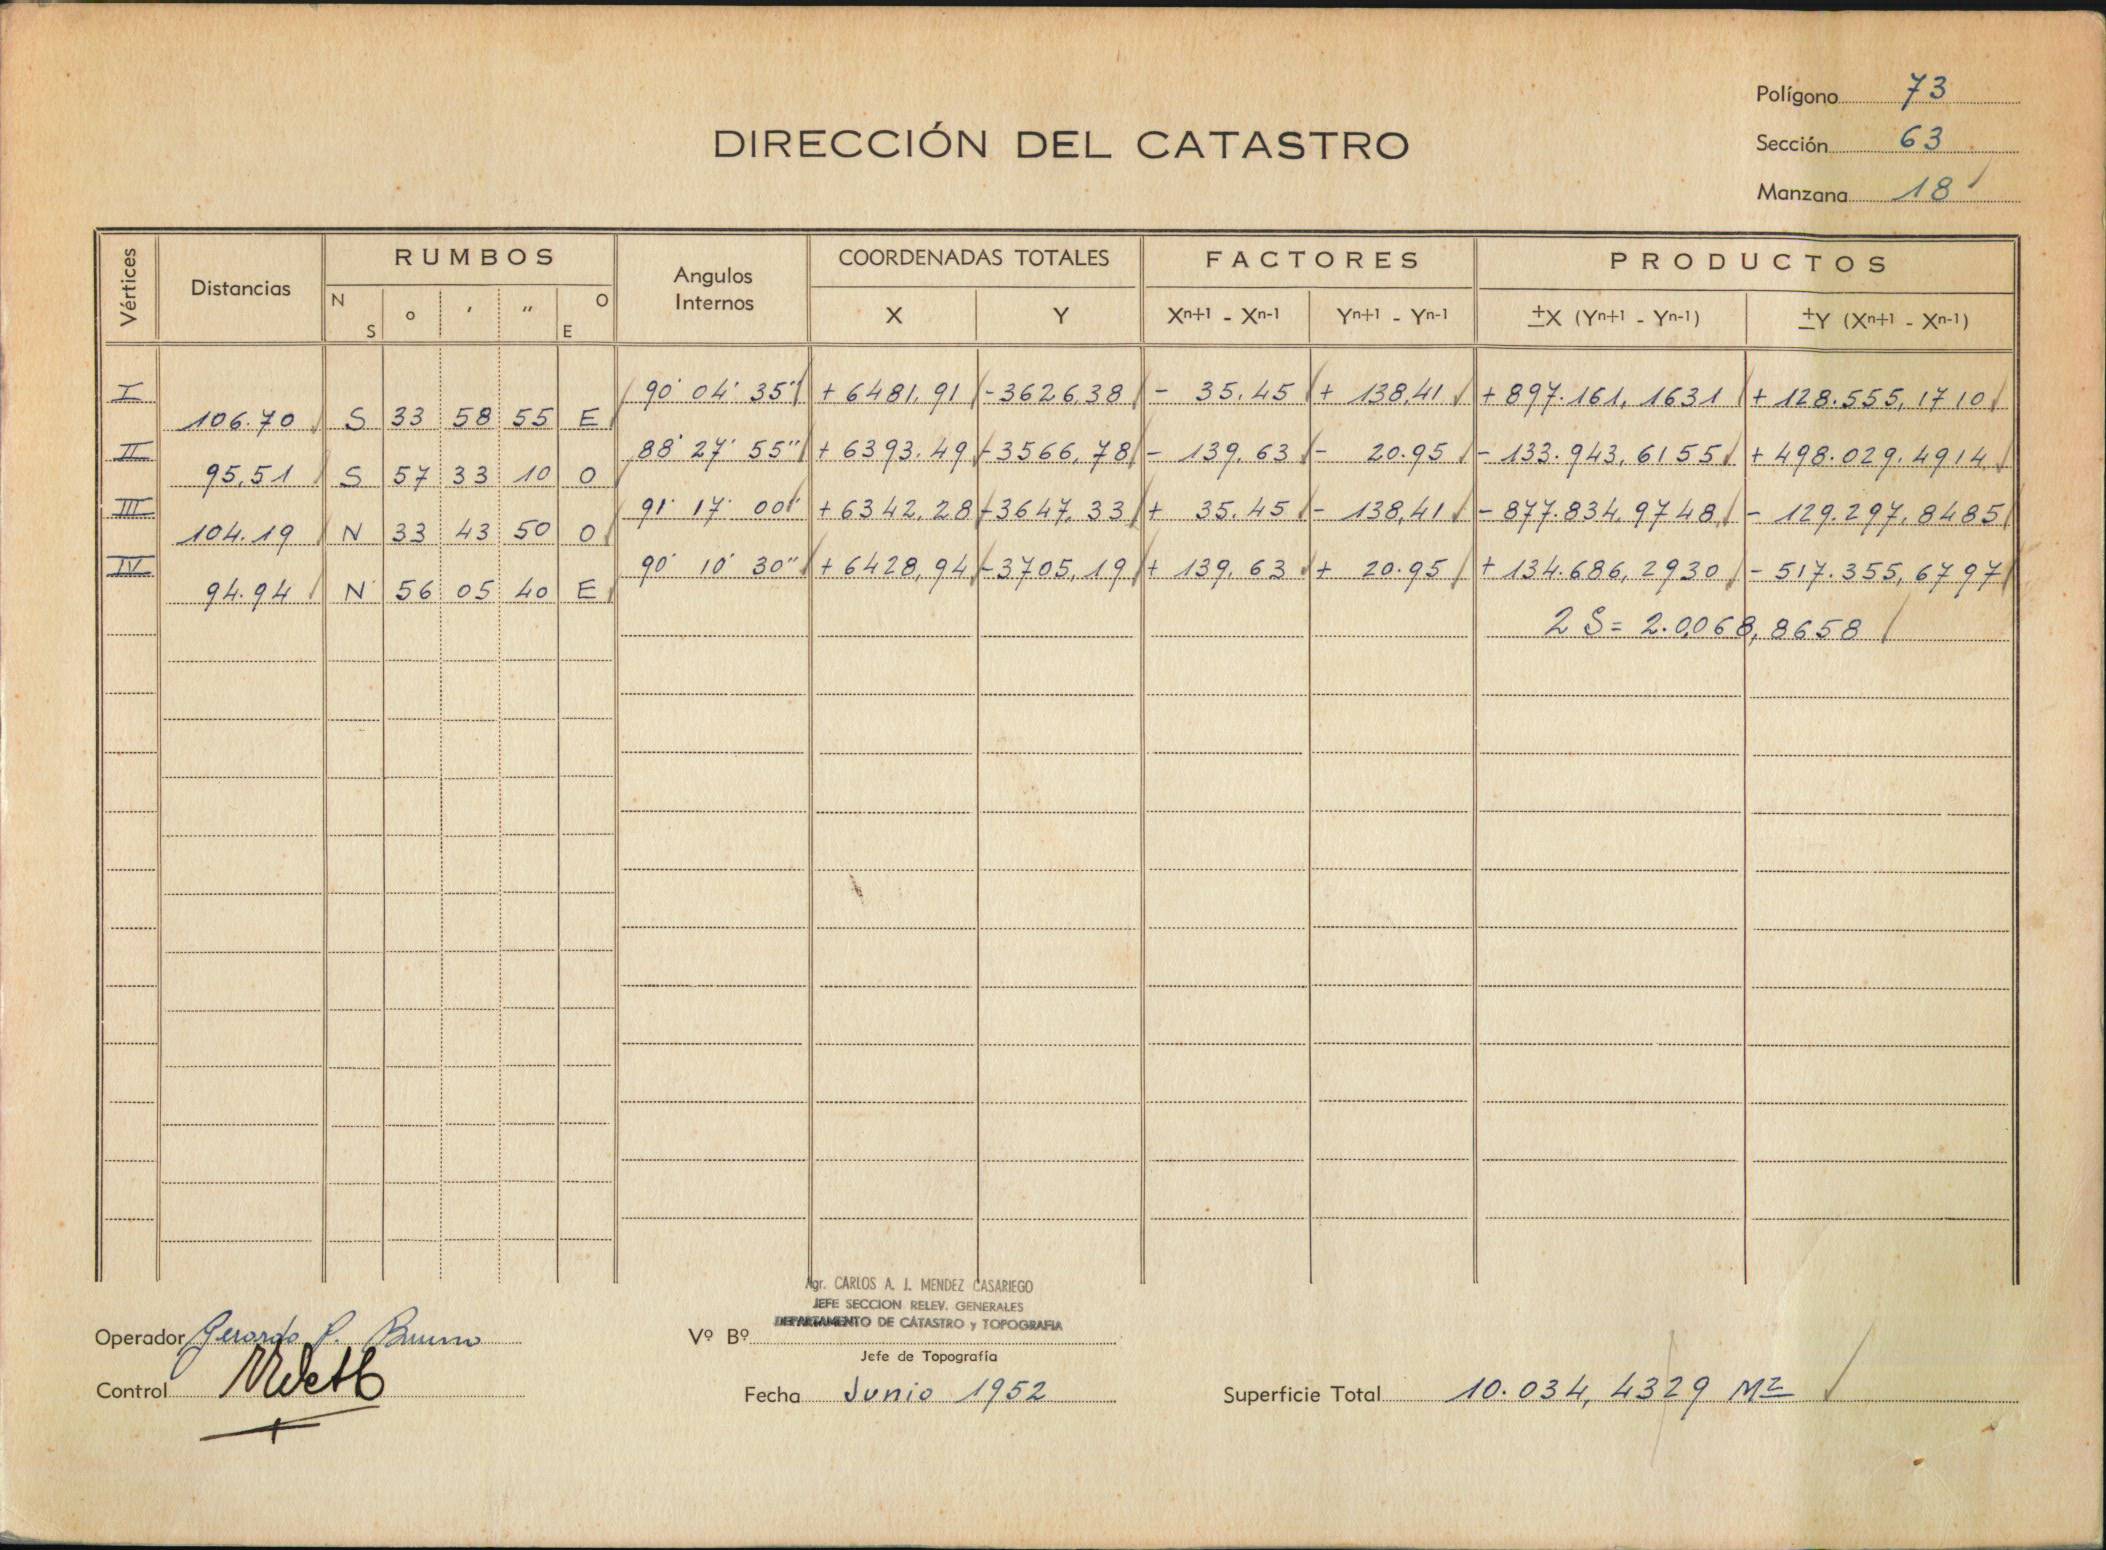 Polígono 73
DIRECCIÓN DEL CATASTRO
Sección 63
Manzana 18
Vértices Distancias RUMBOS Angulos Internos COORDENADAS TOTALES FACTORES PRODUCTOS
N S ° ′ ″ O E X Y Xn+1 - Xn-1 Yn+1 - Yn-1 ±X (Yn+1 - Yn-1) ±Y (Xn+1 - Xn-1)
I 90° 04' 35" + 6481,91 -3626,38 - 35.45 + 138,41 + 897.161,1631 + 128.555,1710
106.70 S 33 58 55 E
II 88° 27' 55" + 6393.49 -3566,78 - 139,63 - 20.95 - 133.943,6155 + 498.029,4914
95,51 S 57 33 10 O
III 91° 17' 00" + 6342,28 -3647,33 + 35.45 - 138,41 - 877.834,9748 - 129.297,8485
104.19 N 33 43 50 O
IV 90° 10' 30" + 6428,94 -3705,19 + 139,63 + 20.95 + 134.686,2930 - 517.355,6797
94.94 N 56 05 40 E
2 S = 2.0068,8658
Agr. CARLOS A. J. MENDEZ CASARIEGO
JEFE SECCION RELEV. GENERALES
DEPARTAMENTO DE CATASTRO y TOPOGRAFIA
Operador Gerardo P. Bruno Vº Bº
Jefe de Topografía
Control
Fecha Junio 1952 Superficie Total 10.034,4329 M2